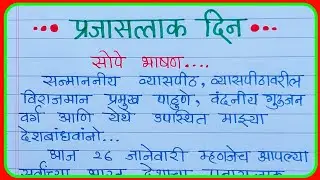 प्रजासत्ताक दिन
सोपे भाषण....
सन्माननीय व्यासपीठ, व्यासपीठावरील
विराजमान प्रमुख पाहुणे, वंदनीय गुरुजन
वर्ग आणि येथे उपस्थित माझ्या
देशबांधवांनो...
आज 26 जानेवारी म्हणजेच आपल्या
सर्वांच्या भारत देशाचा